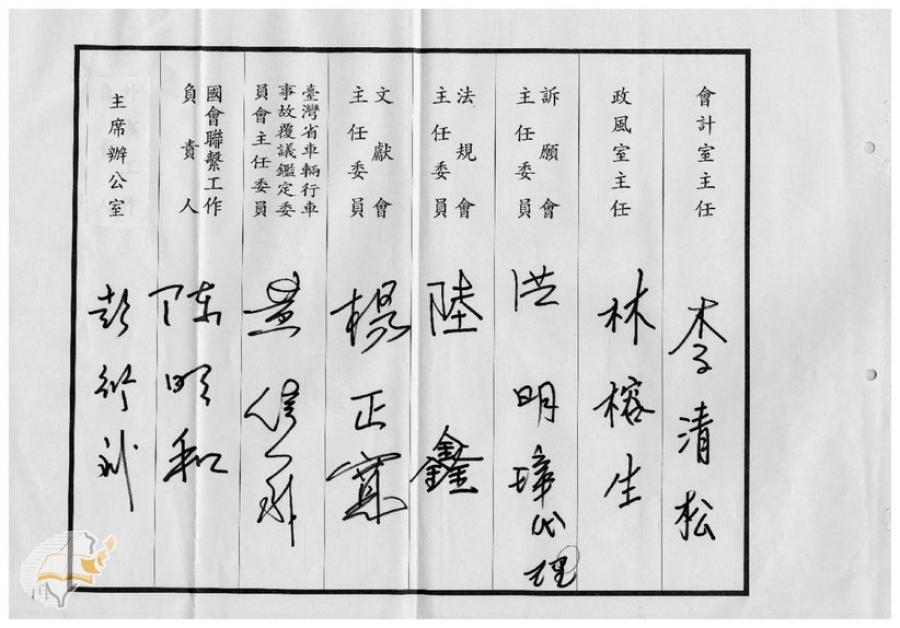 會計室主任
李清松
政風室主任
林榕生
訴願會
主任委員
洪明璋代理
法規會
主任委員
陸鑫
文獻會
主任委員
楊正寬
臺灣省車輛行車
事故覆議鑑定委
員會主任委員
國會聯繫工作
負責人
陳明和
主席辦公室
彭